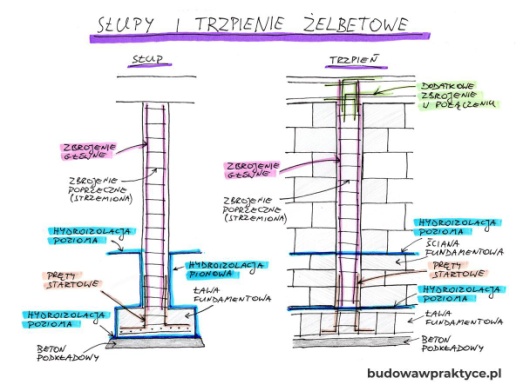 SŁUPY I TRZPIENIE ŻELBETOWE
SŁUP
ZBROJENIE
GŁÓWNE
ZBROJENIE
POPRZECZNE
(STRZEMIONA)
HYDROIZOLACJA
POZIOMA
PRĘTY
STARTOWE
HYDROIZOLACJA
PIONOWA
ŁAWA
FUNDAMENTOWA
HYDROIZOLACJA
POZIOMA
BETON
PODKŁADOWY
TRZPIEŃ
DODATKOWE
ZBROJENIE
W POŁĄCZENIU
ZBROJENIE
GŁÓWNE
ZBROJENIE
POPRZECZNE
(STRZEMIONA)
HYDROIZOLACJA
POZIOMA
ŚCIANA
FUNDAMENTOWA
PRĘTY
STARTOWE
HYDROIZOLACJA
POZIOMA
ŁAWA
FUNDAMENTOWA
BETON
PODKŁADOWY
budowawpraktyce.pl